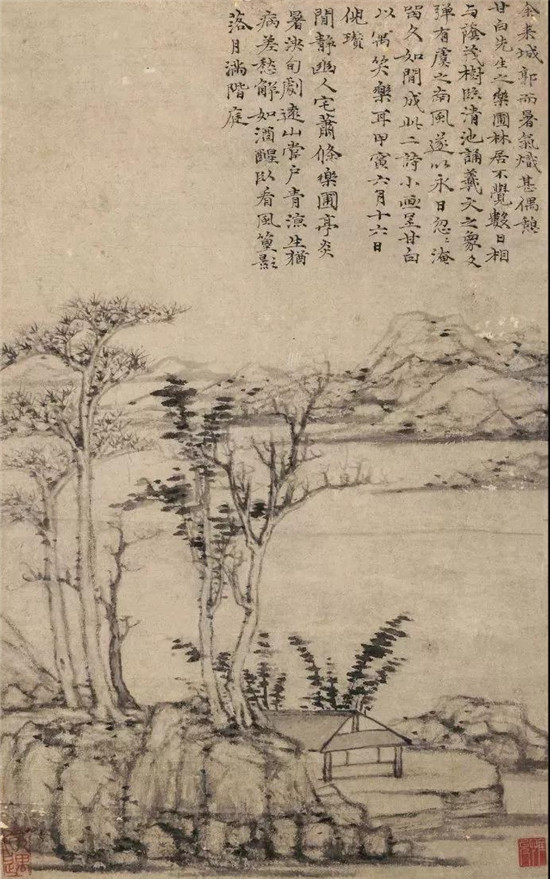 余來城郭而暑氣熾甚偶憩
甘白先生之樂圃林居不覺數日相
与蔭茂樹臨清池誦羲文之象爻
彈有虞之南風遂以永日忽〻淹
留久如閒成此二詩小畫呈甘白
以寓笑樂耳甲寅六月十六日
倪瓚
閒靜幽人宅蕭條樂圃亭炎
暑浹旬劇遠山當戶青涼生猶
病差愁解如酒醒臥看風篁影
落月滿階庭